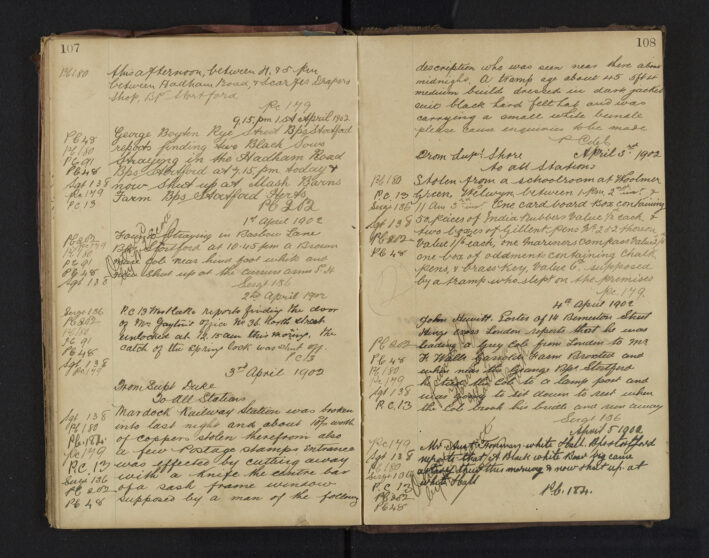 107
Pc 180 this afternoon, between 4 & 5 pm
between Hadham Road, & Scarfes Drapers
Shop, Bp Stortford
Pc 179
9,15 pm 1st April 1902
Pc 48 George Boyton Rye Street Bps Stortford
Pc 180 reports finding two Black Sows
Pc 91 Straying in the Hadham Road
Pc 48 Bps Stortford at 7,15 pm today &
Sgt 138 now shut up at Mash Barns
Pc 179 Farm Bps Stortford Herts
Pc 13 Pc 202
1st April 1902
Pc 202 Found Straying in Lane
Pc 179 Bps Stortford at 10.45 pm a Brown
Pc 91 Cob near hind foot white and
Pc 48 shut up at the arms
Sgt 138 Sergt 136
2nd April 1902
Sergt 136 P.C. 13 reports finding the door
Pc 202 of Mr office No 36 North Street
Pc 180 unlocked at 12.15 am this morning, the
Pc 91 catch of the Spring lock was shut off
Pc 48 P.C. 13
Sgt 138
Pc 179 3rd April 1902
From Supt Duke
To All Stations
Sgt 138 Mardock Railway Station was broken
Pc 180 into last night and about 10/- worth
Pc 184. of coppers stolen therefrom also
Pc 179 a few Postage stamps Entrance
P.C. 13 was effected by cutting away
Sergt 136 with a knife the centre bar
Pc 202 of a sash frame window
Pc 48 supposed by a man of the following
108
description who was seen near there about
midnight. A tramp age about 45 5ft 4
medium build dressed in dark jacket
suit black hard felt hat and was
carrying a small white bundle
please cause enquiries to be made
From Supt Shore April 3rd 1902
to all Stations
Pc 180 Stolen from a schoolroom at Woolmer
P.C. 13 Green, Welwyn between 1 Pm 2nd inst. &
Sergt 136 11 Am 3rd inst. One card board Box containing
Sgt 138 50 pieces of India Rubber Value 1/2 each, &
Pc 202 two boxes of Gillott Pens No 202
Pc 48 Value 1/- each, one Mariners Compass Value
one box of oddment containing Chalk,
Pens, & brass Key, Value 6d. supposed
by a tramp who slept on the premises
Pc 179.
4th April 1902
John Hewitt. Porter of 14 Street
Kings Cross London reports that he was
Pc 202 leading a Grey Cob from London to Mr
Pc 48 F. Farm and
Pc 180 when near the Grange Bps Stortford
Pc 179 he the Cob to a lamp post and
Sgt 138 was going to sit down to rest when
P.C. 13 the Cob broke his bridle and run away
Sergt 136
April 5 1902
Pc 179 Mr White Hall. Bps Stortford
Sgt 138 reports that A Black white Boar pig came
Pc 180
Sergt 136 this morning & now shut up at
P.C. 13 White Hall
Pc 202 Pc. 184.
Pc 48